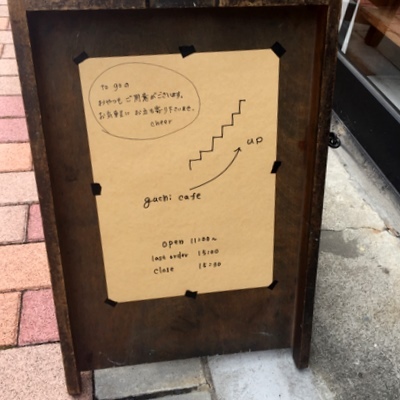 to goの
おやつも ご用意がございます。
お気軽に お立ち寄り下さいませ。
cheer
up
gachi cafe
open 11:00〜
last order 18:00
close 18:30